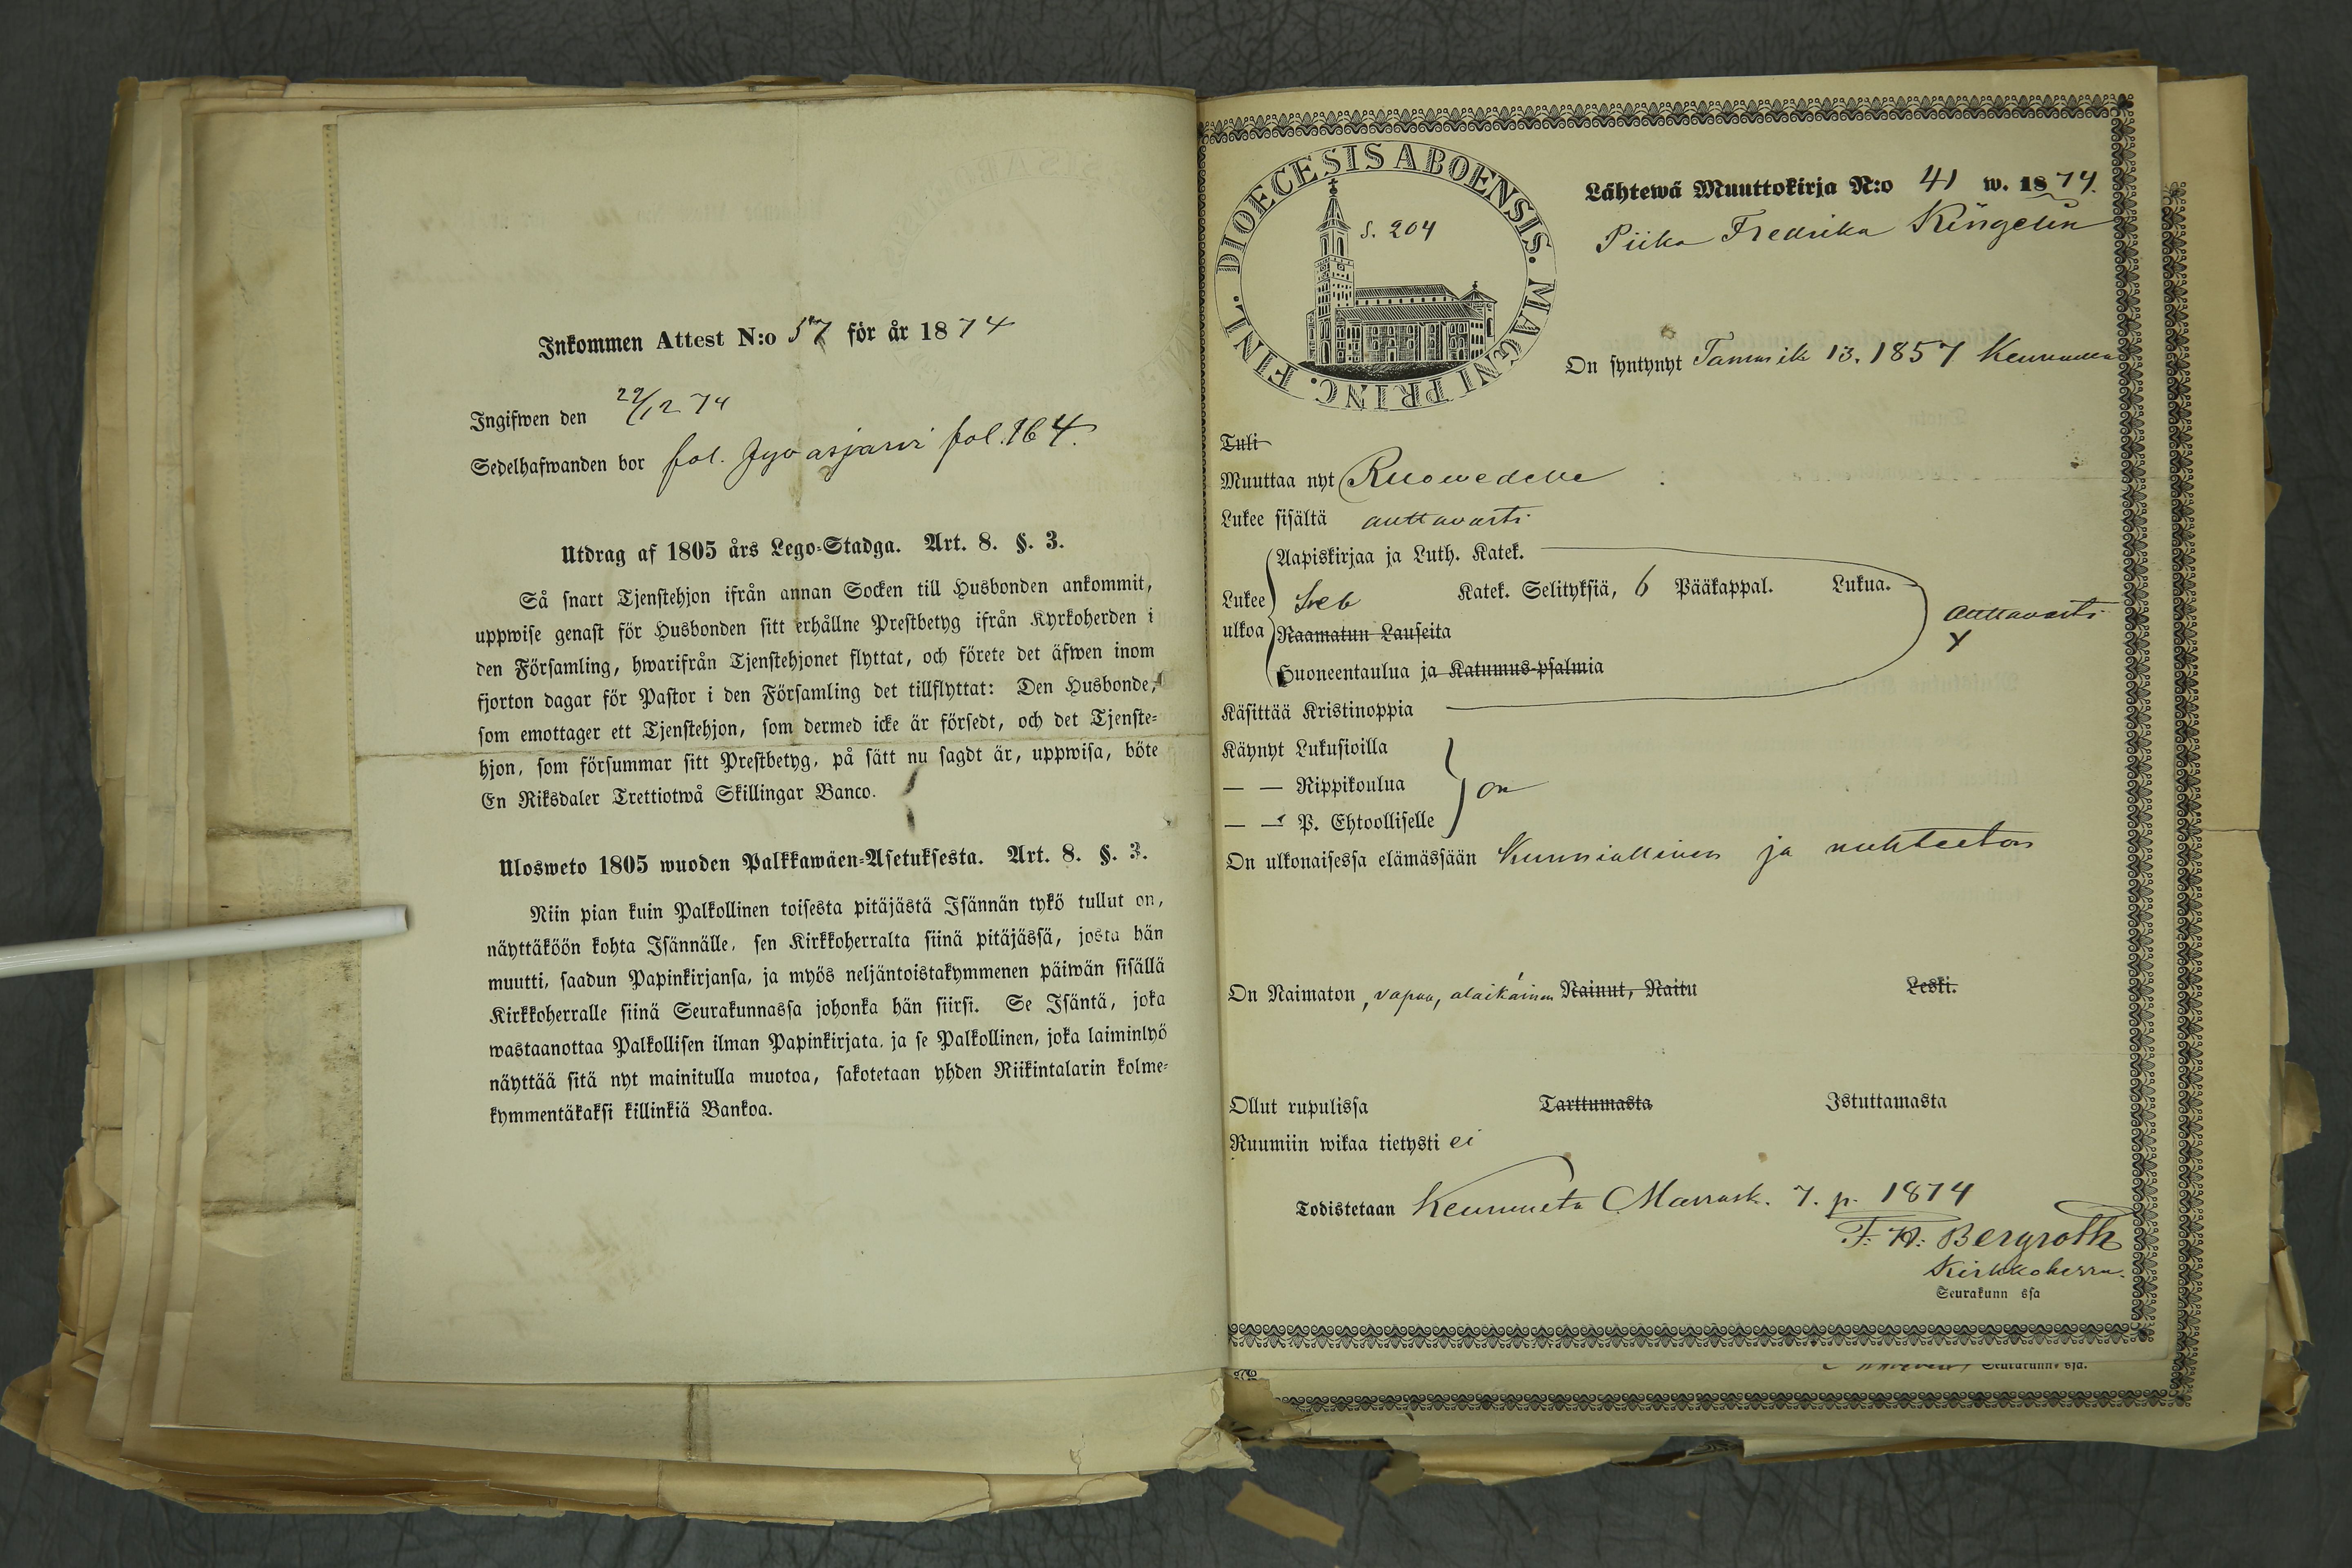 Inkommen Attest N:o 57 för år 1874
Ingifwen den 22/12 74
Sedelhafwanden bor fol. Jyväsjärvi fol. 164.
Utdrag af 1805 års Lego-Stadga. Art. 8. §. 3.
Så snart Tjenstehjon ifrån annan Socken till Husbonden ankommit,
uppwise genast för Husbonden sitt erhållne Prestbetyg ifrån Kyrkoherden i
den Församling, hwarifrån Tjenstehjonet flyttat, och förete det äfwen inom
fjorton dagar för Pastor i den Församling det tillflyttat: Den Husbonde,
som emottager ett Tjenstehjon, som dermed icke är försedt, och det Tjenste-
hjon, som försummar sitt Prestbetyg, på sätt nu sagdt är, uppwisa, böte
En Riksdaler Trettiotwå Skillingar Banco.
Ulosweto 1805 wuoden Palkkawäen-Asetuksesta. Art. 8. §. 3.
Niin pian kuin Palkollinen toisesta pitäjästä Isännän tykö tullut on,
näyttäköön kohta Isännälle, sen Kirkkoherralta siinä pitäjässä, josta hän
muutti, saadun Papinkirjansa, ja myös neljäntoistakymmenen päiwän sisällä
Kirkkoherralle siinä Seurakunnassa johonka hän siirsi. Se Isäntä, joka
wastaanottaa Palkollisen ilman Papinkirjata, ja se Palkollinen, joka laiminlyö
näyttää sitä nyt mainitulla muotoa, sakotetaan yhden Riikintalarin kolme-
kymmentäkaksi killinkiä Bankoa.
DIOECESIS ABOENSIS. MAGNI PRINC. FINL.
S. 204
Lähtewä Muuttokirja N:o 41 w. 1874.
Piika Fredrika Ringelin
On syntynyt Tammik 13. 1857 Keuruulla
Tuli
Muuttaa nyt Ruowedelle
Lukee sisältä auttavasti
Lukee ulkoa
Aapiskirjaa ja Luth. Katek.
Sreb Katek. Selityksiä, 6 Pääkappal. Lukua.
auttavasti
Raamatun Lauseita
Huoneentaulua ja Katumus-psalmia
Käsittää Kristinoppia
Käynyt Lukusioilla
— — Rippikoulua
on
— — P. Ehtoolliselle
On ulkonaisessa elämässään Kunniallinen ja nuhteeton
On Naimaton, vapaa, alaikäinen Nainut, Naitu Leski.
Ollut rupulissa Tarttumasta Istuttamasta
Ruumiin wikaa tietysti ei
Todistetaan Keuruulta Marrask. 7. p. 1874
F. W. Bergroth
Kirkkoherra.
Seurakunn ssa
Seurakunnassa.